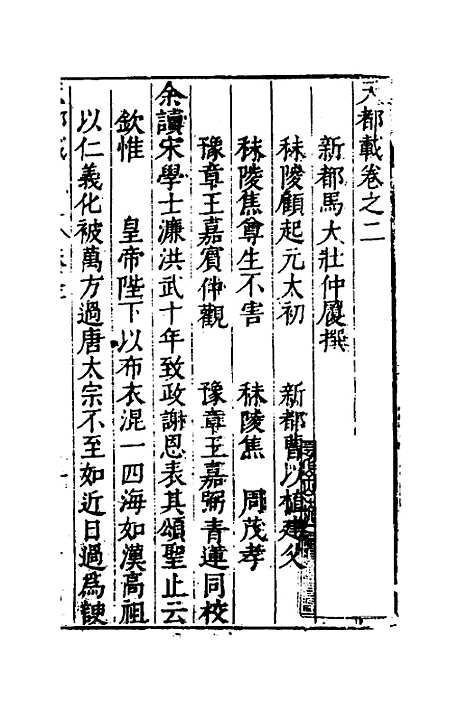 天都載卷之二
新都馬大壯仲履撰
秣陵顧起元太初　新都曹以植建父
秣陵焦尊生不害　秣陵焦　周茂孝
豫章王嘉賓仲觀　豫章王嘉弼青蓮同校
余讀宋學士濂洪武十年致政謝恩表其頌聖止云
欽惟　皇帝陛下以布衣混一四海如漢高祖
以仁義化被萬方過唐太宗不至如近日過為諛